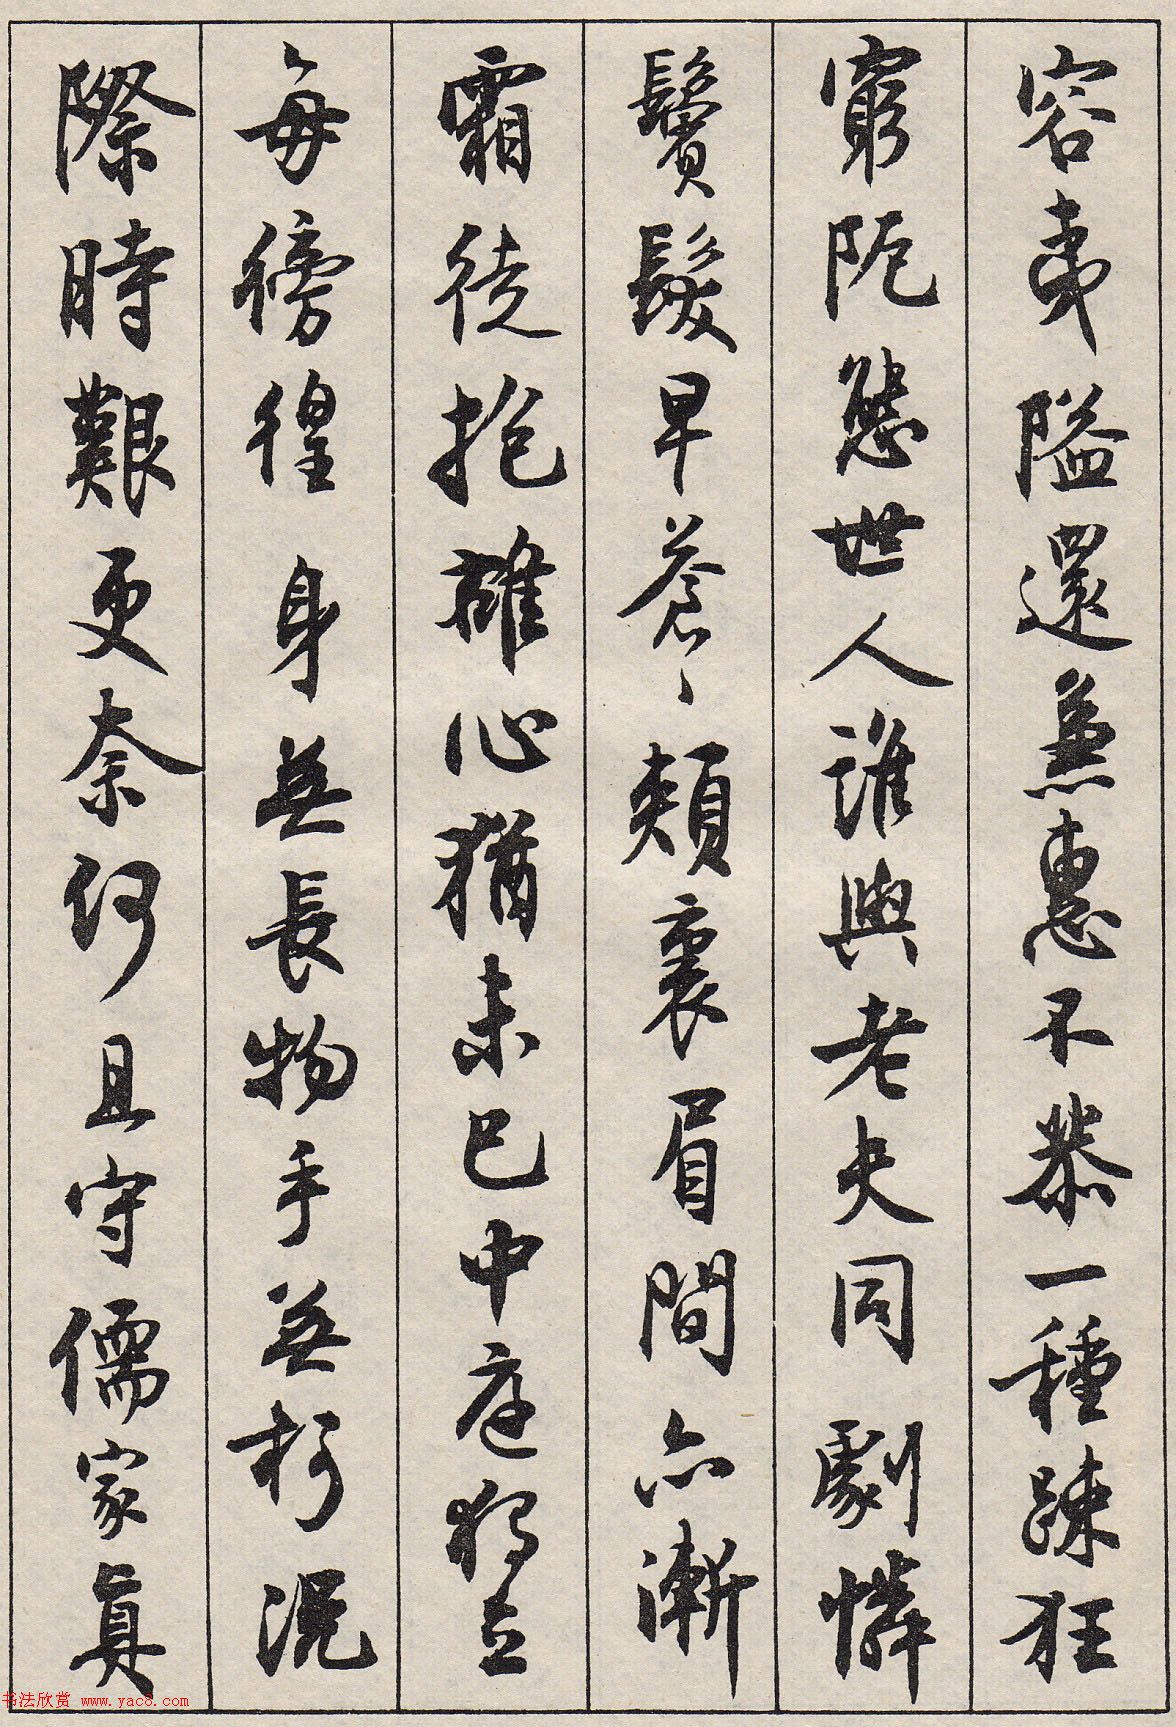 容夷隘還兼惠不恭一種踈狂
窮阨態世人誰與老夫同劇憐
鬢髮早蒼〻頰裏眉間亦漸
霜徒抱雄心猶未已中庭獨立
每徬徨身無長物手無柯況
際時艱更奈何且守儒家真
书法欣赏 www.yac8.com